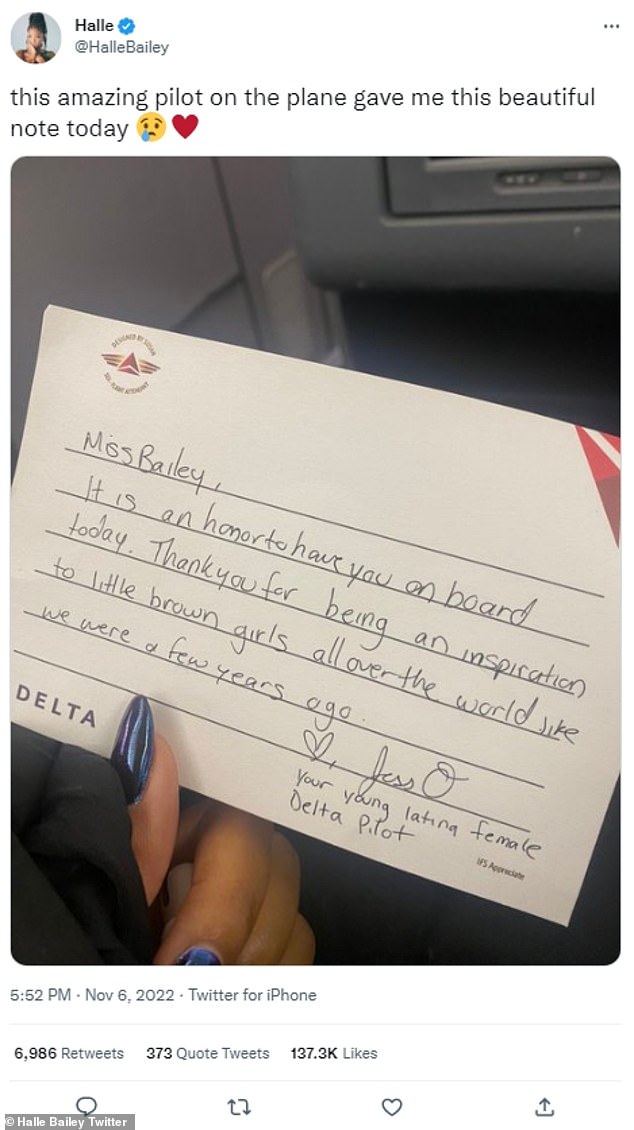 Halle
@HalleBailey
this amazing pilot on the plane gave me this beautiful
note today 😢♥
DESIGNED BY SUSAN
SEA-FLIGHT ATTENDANT
Miss Bailey,
It is an honor to have you on board
today. Thank you for being an inspiration
to little brown girls all over the world like
we were a few years ago.
♡, Jess O
Your young latina female
Delta Pilot
DELTA
IFS Appreciate
5:52 PM · Nov 6, 2022 · Twitter for iPhone
6,986 Retweets 373 Quote Tweets 137.3K Likes
© Halle Bailey Twitter